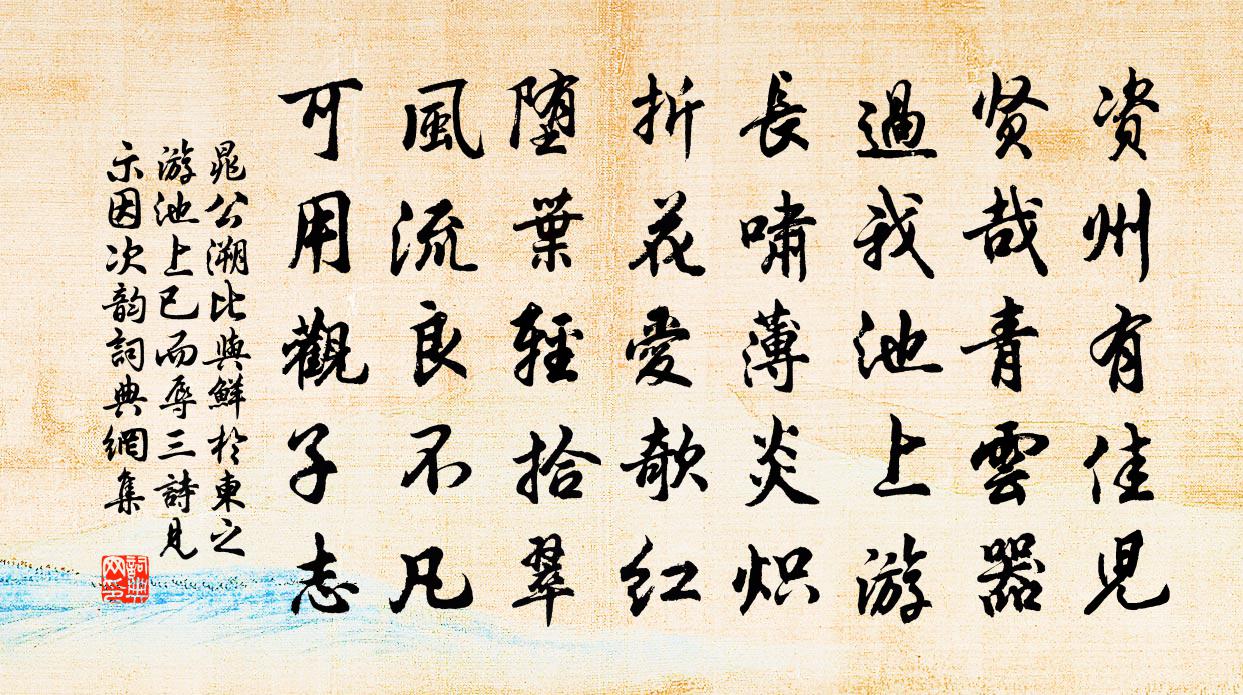 资州有佳児
贤哉青雲器
過我池上游
長嘯薄炎炽
折花愛欹红
堕葉輕拾翠
風流良不凡
可用觀子志
晁公溯比與鮮於東之
游池上已而辱三詩見
示因次韵詞典網集
詞典